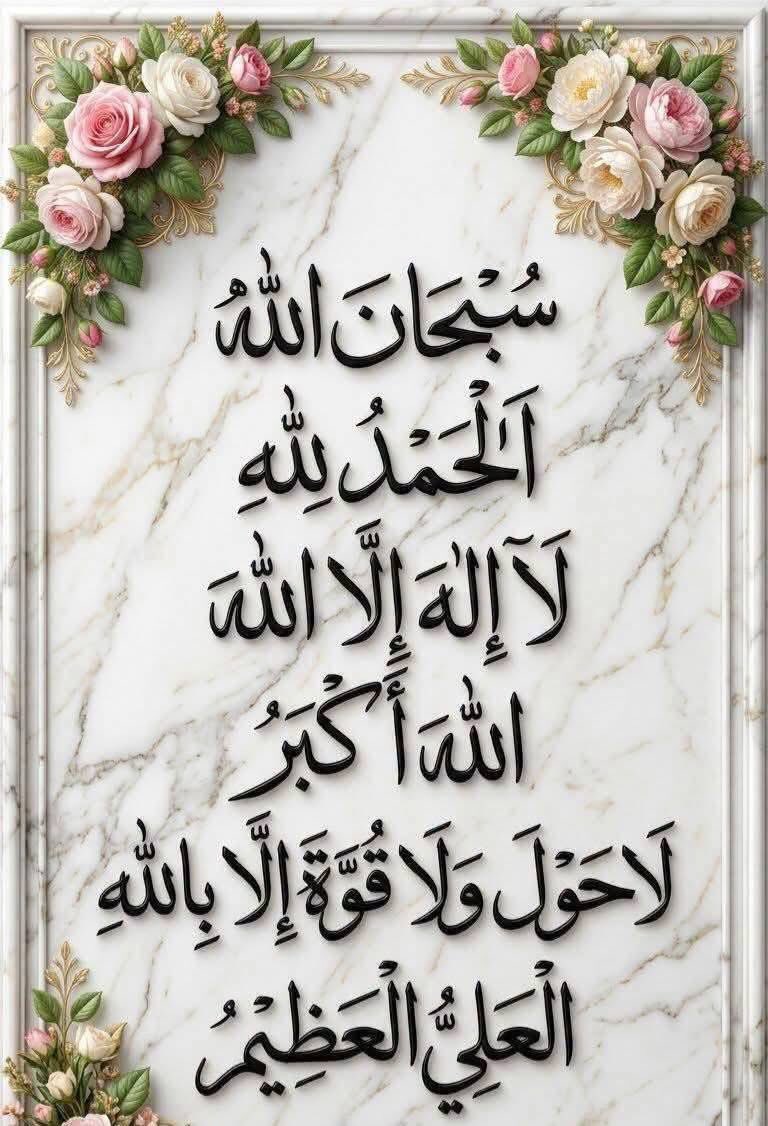 سُبْحَانَ اللهُ
اَلْحَمْدُ لِلهِ
لَآ إِلٰهَ إِلَّا اللهَ
اللهَ أَكْبَرُ
لَا حَوْلَ وَلَا قُوَّةَ إِلَّا بِاللهِ
الْعَلِيُّ الْعَظِيْمُ